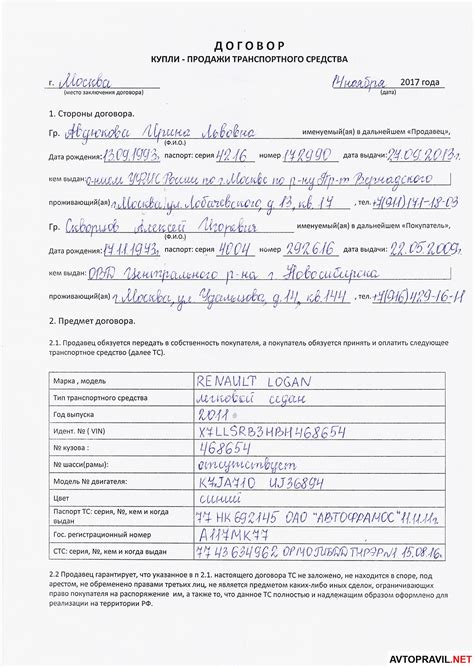 ДОГОВОР
КУПЛИ - ПРОДАЖИ ТРАНСПОРТНОГО СРЕДСТВА
г. Москва 14 ноября 2017 года
(место заключения договора) (дата)
1. Стороны договора.
Гр. Авдюкова Ирина Львовна именуемый(ая) в дальнейшем «Продавец»,
(Ф.И.О.)
Дата рождения: 13.09.1993, паспорт: серия 4216 номер 172990 дата выдачи: 27.09.2013г.
кем выдан: УФМС России по г. Москве по р-ну Пр-т Вернадского
проживающий(ая) г Москва, ул. Лобачевского, д 13, кв. 17, тел. +7(911)171-18-03
Гр. Скворцов Алексей Игоревич именуемый(ая) в дальнейшем «Покупатель»,
(Ф.И.О.)
Дата рождения: 17.11.1973, паспорт: серия 4004 номер 292616 дата выдачи: 22.05.2009,
кем выдан: ОВД Центрального р-на г. Новосибирска
проживающий(ая) г Москва, ул Удальцова, д.14, кв.144, тел. +7(916)429-16-11
2. Предмет договора.
2.1. Продавец обязуется передать в собственность покупателя, а покупатель обязуется принять и оплатить следующее
транспортное средство (далее ТС).
Марка , модель RENAULT LOGAN
Тип транспортного средства легковой седан
Год выпуска 2011
Идент. № ( VIN) X7LLSRB3HBH468654
№ кузова : 468654
№ шасси(рамы): отсутствует
Модель № двигателя: K7JA710 UJ36894
Цвет синий
Паспорт ТС: серия, №, кем и когда
выдан 77 НК 692145 ОАО "АВТОФРАМОС" 11.11.11г.
Гос. регистрационный номер А117МК77
СТС: серия, №, кем и когда выдан 7743634962 15.08.16г.
2.2 Продавец гарантирует, что указанное в п 2.1. настоящего договора ТС не заложено, не находится в споре, под
арестом, не обременено правами третьих лиц, не является предметом каких-либо иных сделок, ограничивающих
право покупателя на распоряжение им, а также то, что данное ТС полностью и надлежащим образом оформлено для
реализации на территории РФ.
AVTOPRAVIL.NET